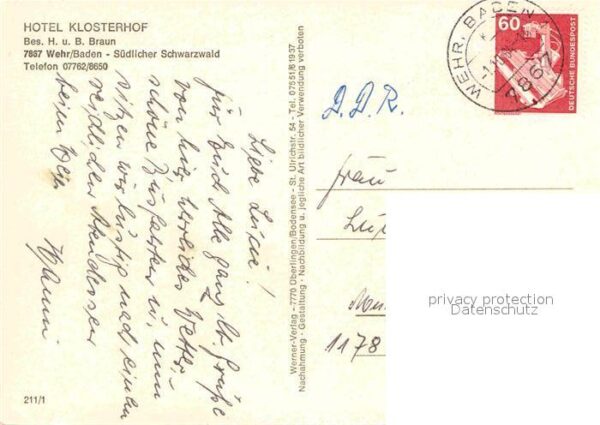 HOTEL KLOSTERHOF
Bes. H. u. B. Braun
7867 Wehr/Baden - Südlicher Schwarzwald
Telefon 07762/8650
Liebe Luzie!
für Euch Alle ganz lb. Grüße
von hier, herrliches Wetter,
schöne Busfahrten u. nun
sitzen wir lustig nach einem
redlichen
beim Wein
211/1
Werner-Verlag - 7770 Überlingen/Bodensee - St. Ulrichstr. 54 - Tel. 07551/61937
Nachahmung - Gestaltung - Nachbildung u. jegliche Art bildlicher Verwendung verboten
WEHR, BADEN
7867
60
DEUTSCHE BUNDESPOST
D.D.R.
Frau
1178
privacy protection
Datenschutz